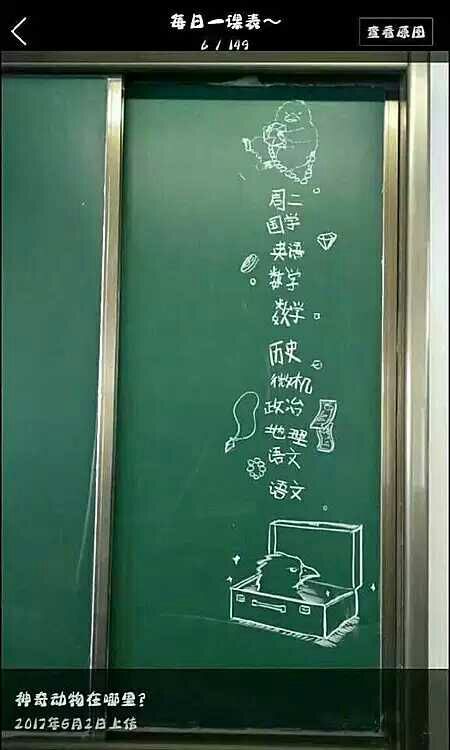 每日一课表～
6 / 149
查看原图
周二
国学
英语
数学
数学
历史
微机
政治
地理
语文
语文
神奇动物在哪里?
2017年6月2日上传